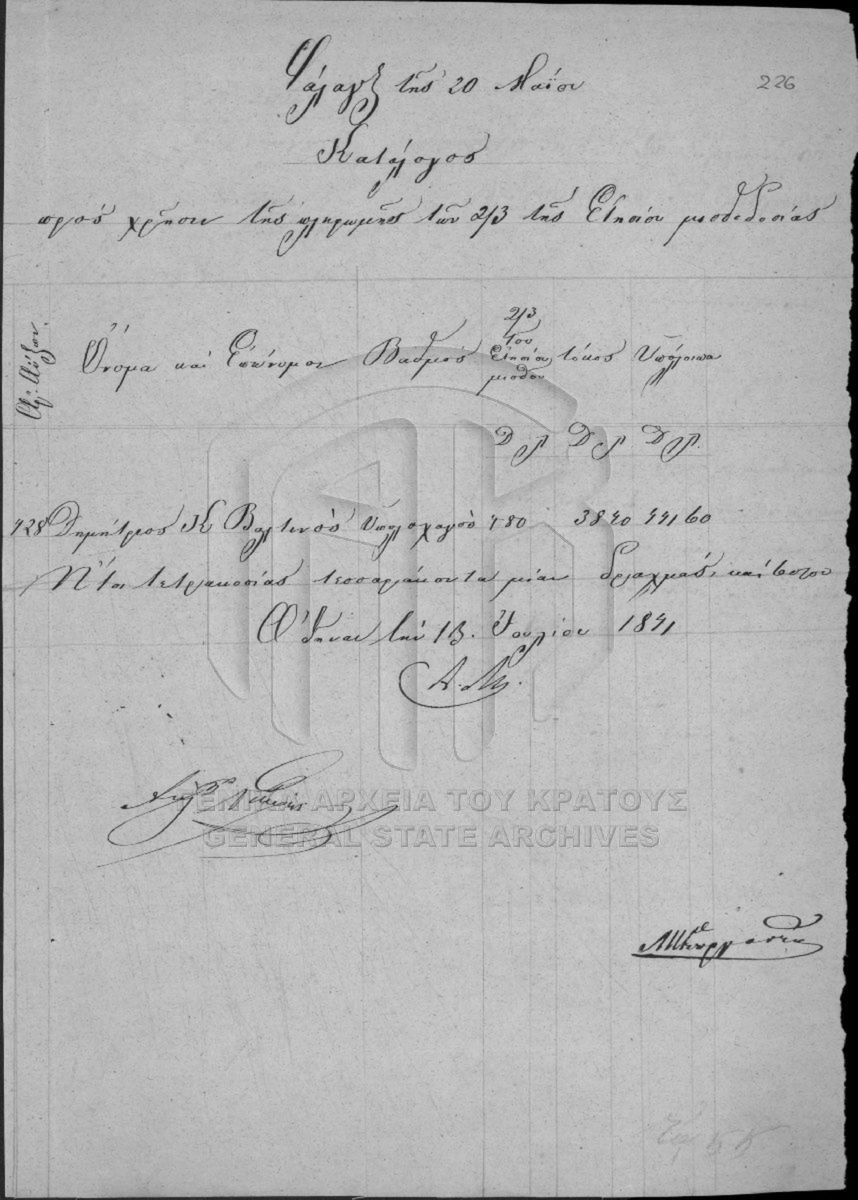 Φάλαγξ της 20 Μαΐου
226
Κατάλογος
προς χρήσιν της πληρωμής των 2/3 της Ετησίου μισθοδοσίας
Αρ: Αύξων.
Όνομα και Επώνυμον Βαθμός 2/3 του Ετησίου μισθού τόκος Υπόλοιπα
Δ λ Δ λ Δ λ
428 Δημήτριος Κ Βαλτινός Υπολοχαγός 480 38 40 441 60
Ήτοι τετρακοσίας τεσσαράκοντα μίαν δραχμάς, και
Αθήναι την 13. Ιουλίου 1841
ΓΕΝΙΚΑ ΑΡΧΕΙΑ ΤΟΥ ΚΡΑΤΟΥΣ
GENERAL STATE ARCHIVES